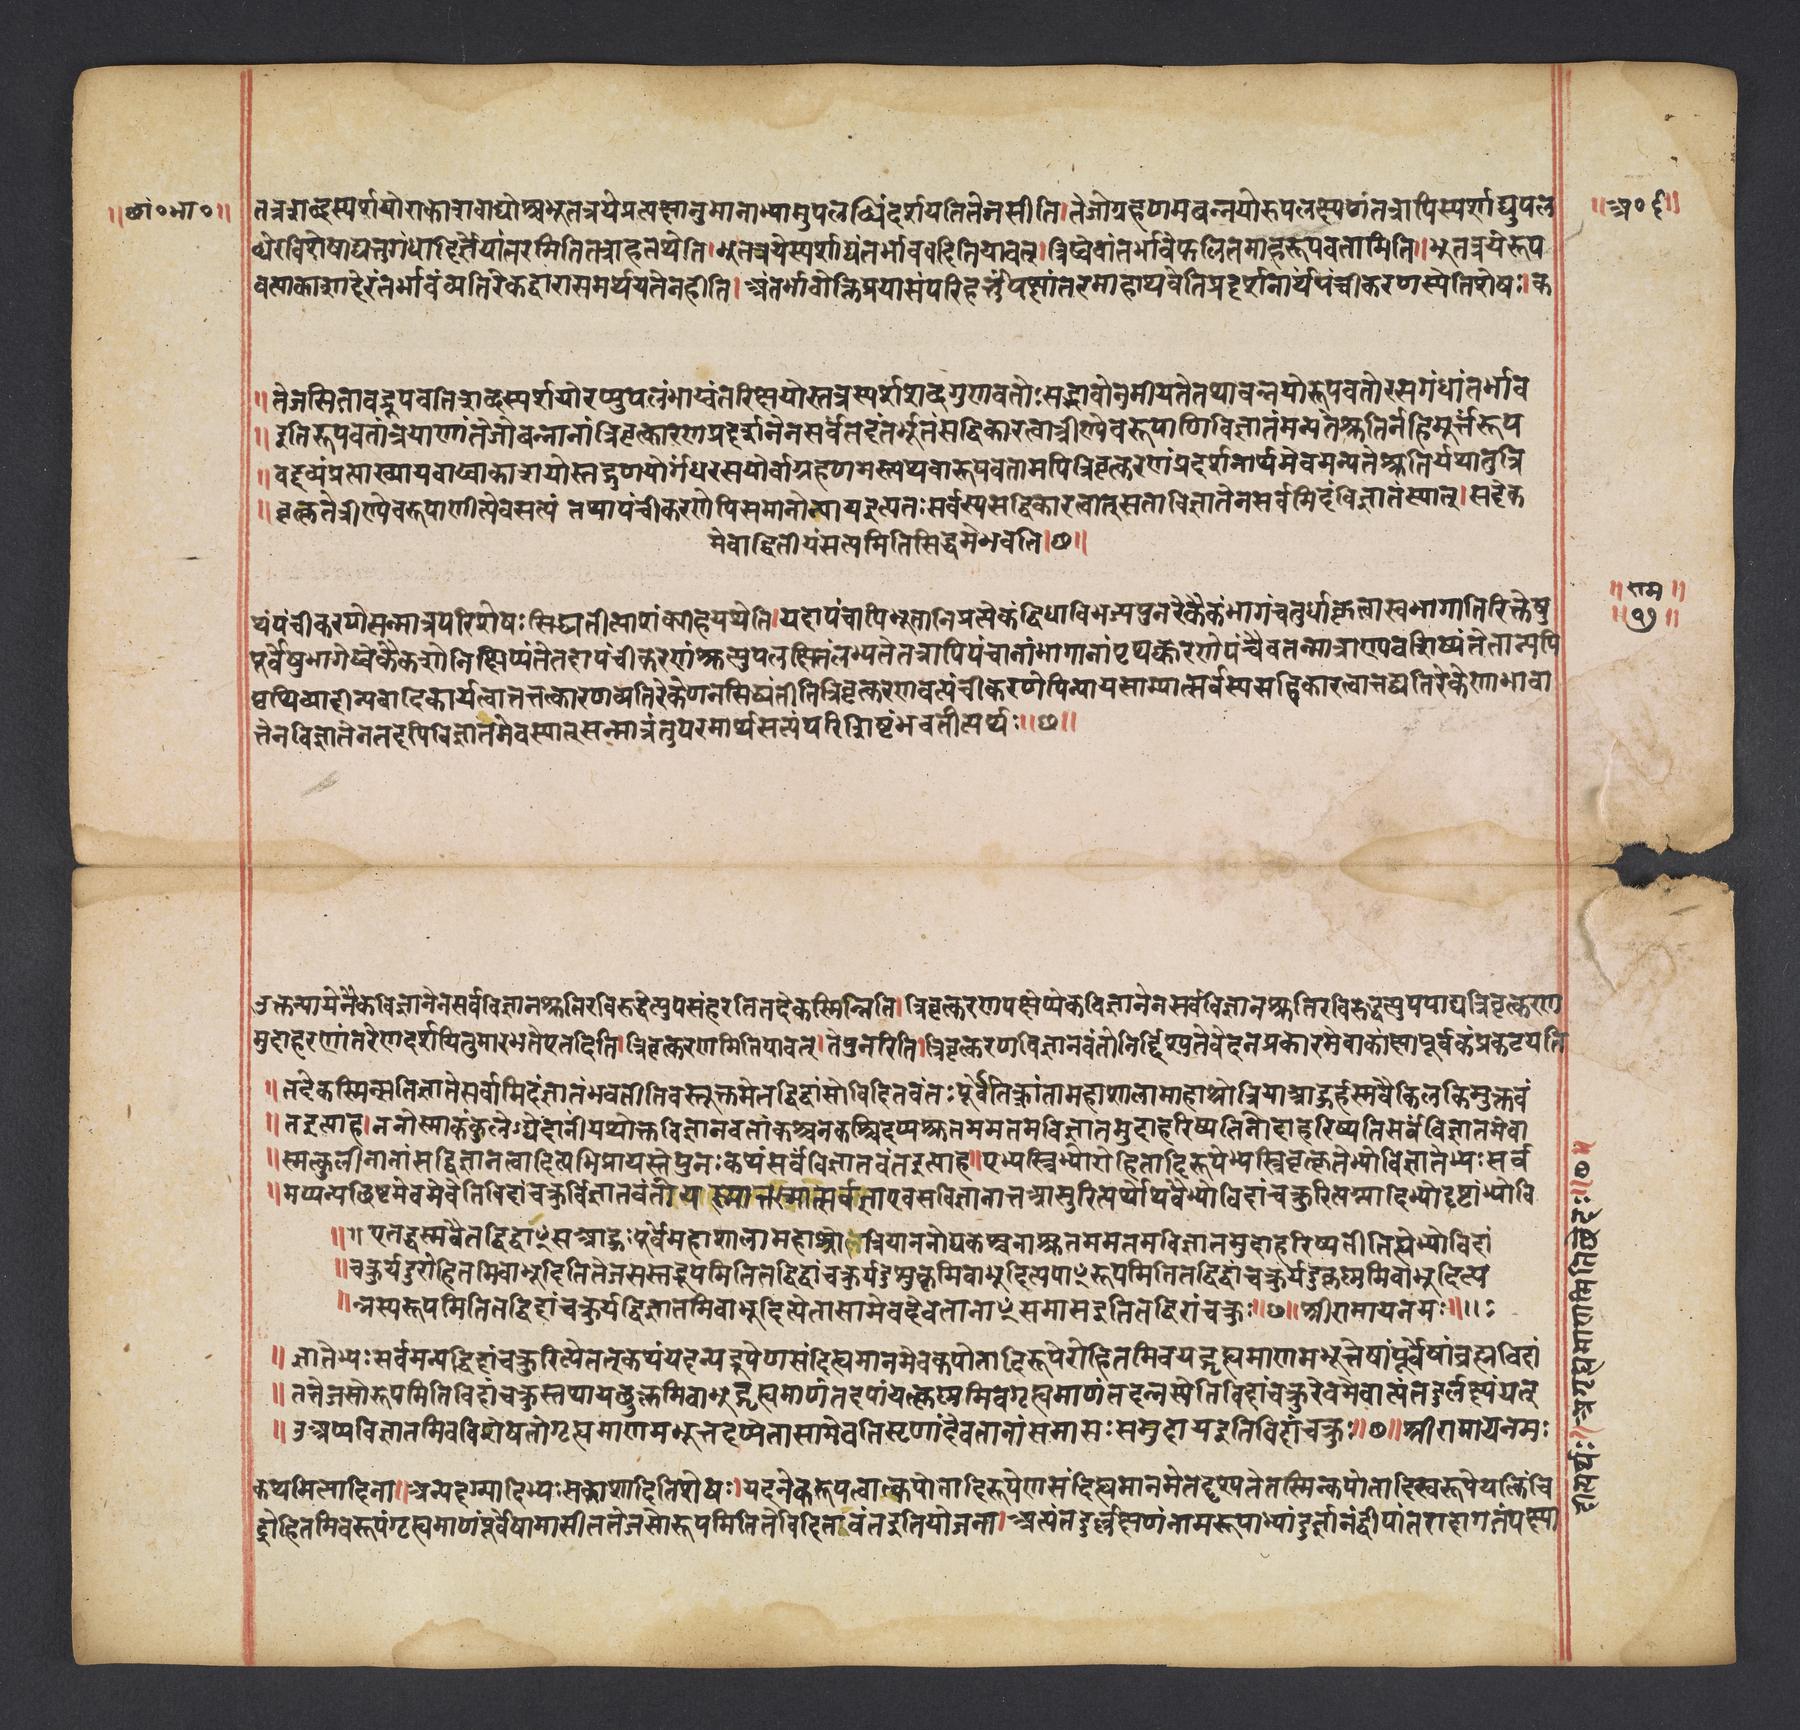 ॥छां०भा०॥
॥अ०६॥
तत्रशब्दस्पर्शयोराकाशवाय्वोश्चभूतत्रयेप्रत्यक्षानुमानाभ्यामुपलब्धिंदर्शयतितेजसीति।तेजोग्रहणमबन्नयोरुपलक्षणंतत्रापिस्पर्शाद्युपल
ब्धेरविशेषाद्यत्तुगंधादेर्ति तत्राहतथेति।भूतत्रयेस्पर्शाद्यंतर्भाववदितियावत्।त्रिष्वेवांतर्भावेफलितमाहरूपवतामिति॥भूतत्रयेरूप
वत्याकाशादेरंतर्भावंव्यतिरेकद्वारासमर्थयतेनहीति।अंतर्भावोक्तिप्रयासंपरिहर्त्तुंपक्षांतरमाहाथवेतिप्रदर्शनार्थंपंचीकरणस्येतिशेषः।क
॥तेजसितावद्रूपवतिशब्दस्पर्शयोरप्युपलंभाद्वाय्वंतरिक्षयोस्तत्रस्पर्शशब्दगुणवतोःसद्भावोनुमीयतेतथाबन्नयोरूपवतोरसगंधांतर्भाव
॥इतिरूपवतांत्रयाणांतेजोबन्नानांत्रिवृत्करणप्रदर्शनेनसर्वंतदंतर्भूतंसद्विकारत्वात्रीण्येवरूपाणिविज्ञातंमन्यतेश्रुतिर्नहिमूर्त्तंरूप
॥वद्द्रव्यंप्रत्याख्यायवाय्वाकाशयोस्तद्गुणयोर्गंधरसयोर्वाग्रहणमस्त्यथवारूपवतामपित्रिवृत्करणंप्रदर्शनार्थमेवमन्यतेश्रुतिर्यथातुत्रि
॥वृत्कृतेत्रीण्येवरूपाणीत्येवसत्यं तथापंचीकरणेपिसमानोन्यायइत्यतःसर्वस्यसद्विकारत्वात्सताविज्ञातेनसर्वमिदंविज्ञातंस्यात्।सदेक
मेवाद्वितीयंसत्यमितिसिद्धमेवभवति।छ॥
॥राम॥
॥१७॥
थंपंचीकरणेसन्मात्रपरिशेषःसिद्ध्यतीत्याशंक्याहयथेति।यदापंचापिभूतानिप्रत्येकंद्विधाविभज्यपुनरेकैकंभागंचतुर्धाकृत्वास्वभागातिरिक्तेषु
पूर्वेषुभागेष्वेकैकशोनिक्षिप्यंतेतदापंचीकरणंश्रुत्युपलक्षितंलभ्यतेतत्रापिपंचानांभागानांपृथक्करणेपंचैवतन्मात्राण्यवशिष्यंतेतान्यपि
पृथिव्यादीन्यबादिकार्यत्वात्तत्तत्कारणव्यतिरेकेणनसिद्ध्यंतीतित्रिवृत्करणवत्पंचीकरणेपिन्यायसाम्यात्सर्वस्यसद्विकारत्वात्तद्व्यतिरेकेणाभावा
त्तेनविज्ञातेनतदपिविज्ञातमेवस्यात्सन्मात्रंतुपरमार्थसत्यंपरिशिष्टंभवतीत्यर्थः॥छ॥
उक्तन्यायेनैकविज्ञानेनसर्वविज्ञानश्रुतिरविरुद्धेत्युपसंहरतितदेकस्मिन्निति।त्रिवृत्करणपक्षेप्येकविज्ञानेनसर्वविज्ञानश्रुतिरविरुद्धेत्युपपाद्यत्रिवृत्करण
मुदाहरणांतरेणदर्शयितुमारभतेएतदिति।त्रिवृत्करणमितियावत्।तेपुनरिति।त्रिवृत्करणविज्ञानवंतोनिर्द्दिश्यंतेवेदनप्रकारमेवाकांक्षापूर्वकंप्रकटयति
॥तदेकस्मिन्सतिज्ञातेसर्वमिदंज्ञातंभवतीतिवस्तूक्तमेतद्विद्वांसोविदितवंतःपूर्वेतिक्रांतामहाशालामहाश्रोत्रियाआहुर्हस्मवैकिलकिमुक्तवं
॥तइत्याह।ननोस्माकंकुलेद्येदानींयथोक्तविज्ञानवतांकश्चनकश्चिदप्यश्रुतममतमविज्ञातमुदाहरिष्यतिनोदाहरिष्यतिसर्वंविज्ञातमेवा
॥स्मत्कुलीनानांसद्विज्ञानत्वादित्यभिप्रायस्तेपुनःकथंसर्वंविज्ञातवंतइत्याह॥एभ्यस्त्रिभ्योरोहितादिरूपेभ्यस्त्रिवृत्कृतेभ्योविज्ञातेभ्यःसर्व
॥मप्यन्यच्छिष्टमेवमेवेतिविदांचक्रुर्विज्ञातवंतो सर्वज्ञाएवसद्विज्ञानात्तआसुरित्यर्थोथवैभ्योविदांचक्रुरित्यग्न्यादिभ्योदृष्टांतेभ्योवि
॥एतद्धस्मवैतद्विद्वाꣳसआहुःपूर्वेमहाशालामहाश्रोत्रियाननोद्यकश्चनाश्रुतममतमविज्ञातमुदाहरिष्यतीतिह्येभ्योविदां
॥चक्रुर्यदुरोहितमिवाभूदितितेजसस्तद्रूपमितितद्विदांचक्रुर्यदुशुक्लमिवाभूदित्यपाꣳरूपमितितद्विदांचक्रुर्यदुकृष्णमिवाभूदित्य
॥न्नस्यरूपमितितद्विदांचक्रुर्यद्विज्ञातमिवाभूदित्येतासामेवदेवतानाꣳसमासइतितद्विदांचक्रुः॥७॥श्रीरामायनमः॥॥
॥ज्ञातेभ्यःसर्वमन्यद्विदांचक्रुरित्येतत्कथंयदन्यद्रूपेणसंदिह्यमानमेवकपोतादिरूपेरोहितमिवयद्गृह्यमाणमभूत्तेषांपूर्वेषांब्रह्मविदां
॥तत्तेजसोरूपमितिविदांचक्रुस्तथायच्छुक्लमिवाभूद्गृह्यमाणंतदपांयत्कृष्णमिवगृह्यमाणंतदन्नस्येतिविदांचक्रुरेवमेवात्यंतदुर्लक्ष्यंयत्
॥उअप्यविज्ञातमिवविशेषतोगृह्यमाणमभूत्तदप्येतासामेवतिसृणांदेवतानांसमासःसमुदायइतिविदांचक्रुः॥७॥श्रीरामायनमः
कथमित्यादिना॥अन्यदग्न्यादिभ्यःसकाशादितिशेषः।यदनेकरूपत्वात्कपोतादिरूपेणसंदिह्यमानमेतद्दृश्यतेतस्मिन्कपोतादिस्वरूपेयत्किंचि
द्रोहितमिवरूपंगृह्यमाणंपूर्वेषामासीत्तत्तेजसोरूपमितितेविदितवंतइतियोजना।अत्यंतदुर्लक्षणंनामरूपाभ्यांदुर्ज्ञानंद्वीपांतरादागतंपक्ष्या